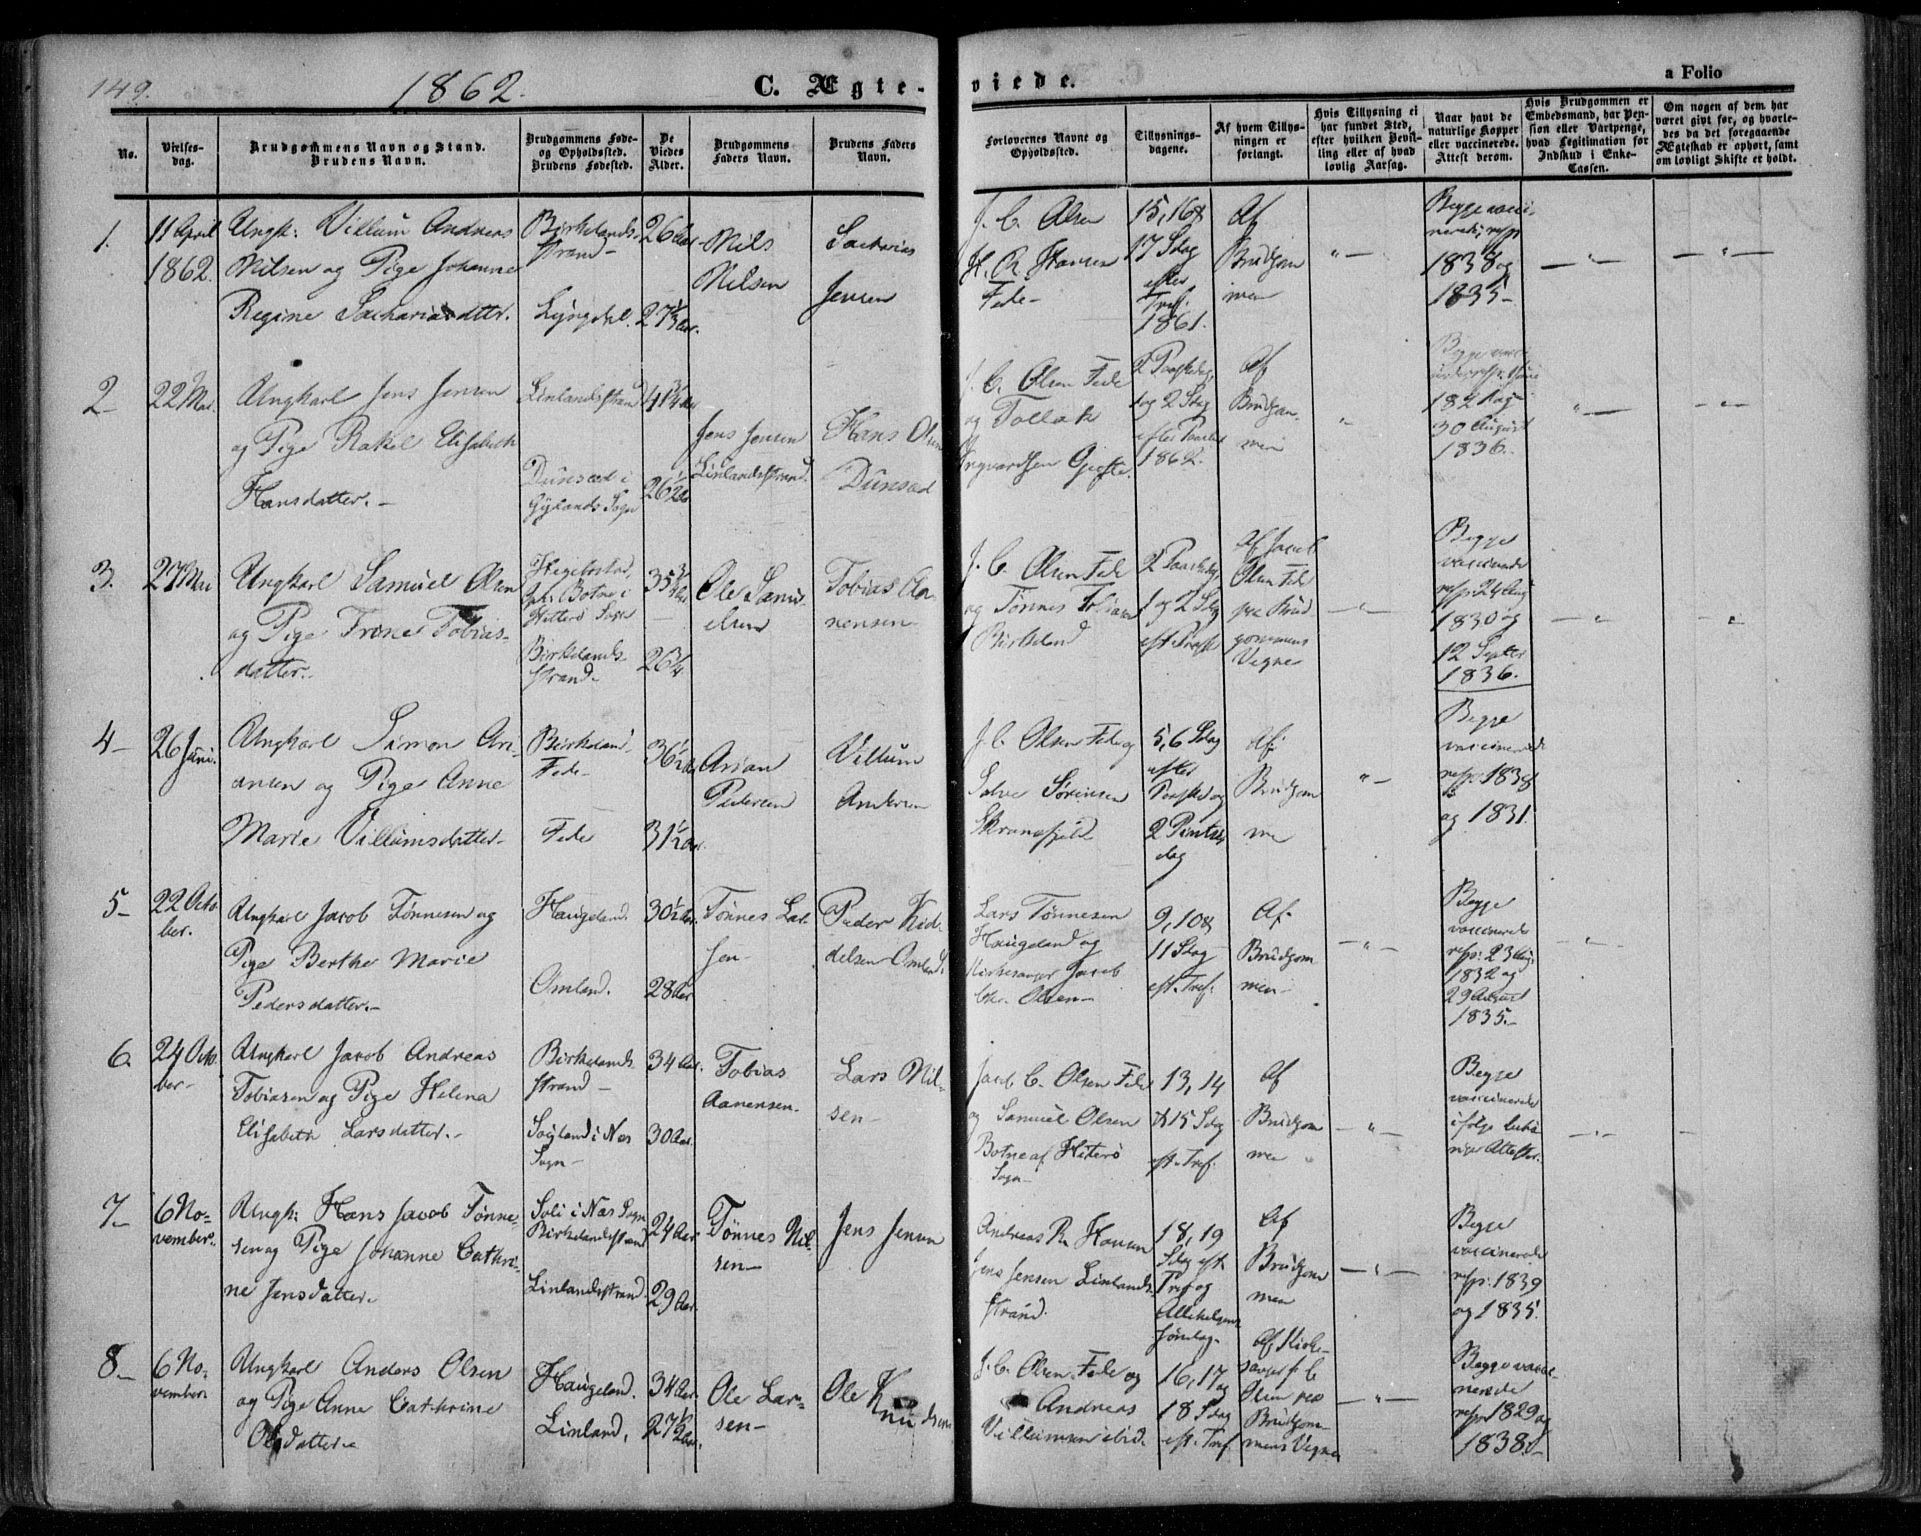 149.
1862.
C. Ægte-
viede.
a Folio
No.
Vielses-
dag.
Brudgommens Navn og Stand.
Brudens Navn.
Brudgommens Føde-
og Opholdssted.
Brudens Fødested.
De
Viedes
Alder.
Brudgommens
Faders Navn.
Brudens Faders
Navn.
Forlovernes Navne og
Opholdssted.
Tillysnings-
dagene.
Af hvem Tillys-
ningen er
forlangt.
Hvis Tillysning ei
har fundet Sted,
efter hvilken Bevil-
ling eller af hvad
lovlig Aarsag.
Naar havt de
naturlige Kopper
eller vaccinerede.
Attest derom.
Hvis Brudgommen er
Embedsmand, har Pen-
sion eller Vartpenge,
hvad Legitimation for
Indskud i Enke-
Cassen.
Om nogen af dem har
været givt før, og hvorle-
des da det foregaaende
Ægteskab er ophørt, samt
om lovligt Skifte er holdt.
1.
11 April
1862.
Ungk: Villum Andreas
Nilsen og Pige Johanne
Regine Sachariasdtter.
Birkelands-
strand-
Lyngdal.
26 Aar
27 1/3 Aar.
Nils
Nilsen
Sacharias
Jensen
J. C. Olsen
H. R. Hansen
Fede-
15, 16 &
17 Sdag
efter
Tref.
1861.
Af
Brudgom
men
Begge vacci-
nerede, resp.
1838 og
1835-
2-
22 Mai
Ungkarl Jens Jensen
og Pige Rakel Elisabeth
Hansdatter.-
Linlandsstrand
Dunsæd i
Gylands Sogn
41 3/4 Aar
26 1/2 Aar
Jens Jensen
Linlandsstrand.
Hans Olsen
Dunsæd
J. C. Olsen Fede
og Tollak
Ingvardsen
2 Paaskedag,
1 og 2 Sdag
efter Paaske
1862.
Af
Brudgom-
men
Begge
30 August
1836.
3.
27 Mai
Ungkarl Samuel Olsen
og Pige Trine Tobias-
datter.
Hegebostad,
Oph. Botne i
Hitterø Sogn
Birkelands-
strand-
35 3/4 Aar
26 1/4
Ole Samu-
elsen
Tobias Aa-
nensen-
J. C. Olsen Fede
og Tønnes Tobiasen
Birkeland
2 Paaskedag
1 og 2 Sdag
eft. Paaske
Af Jacob
Olsen Fede
paa Brud
gommens
Vegne
Begge
vaccinerede
resp. 24 Aug
1830 og
12 Septbr
1836.
4-
26 Juni.
Ungkarl Simon Ari-
ansen og Pige Anne
Marie Villumsdatter-
Birkeland-
Fede-
Fede
36 1/2 Aar
31 1/2 Aar
Arian
Pedersen
Villum
Andersen
J. C. Olsen Fede og
Salve Sørensen
Skransfjeld
5, 6 Sdag
efter
Paaske og
2 Pintse
dag
Af
Brudgom
me
Begge
vaccinerede
resp. 1838
og 1831.
5-
22 Octo-
ber.
Ungkarl Jacob Tønnesen og
Pige Berthe Marie
Pedersdatter.-
Haugeland.
Omland.
30 1/2 Aar.
28 Aar
Tønnes Lar-
sen-
Peder Kid-
delsen Omland.
Lars Tønnesen
Haugeland og
Kirkesanger Jacob
Chr. Olsen-
9, 10 &
11 Sdag
eft. Tref.
Af
Brudgom
men-
Begge
vaccinerede
resp. 23 Aug.
1832 og
29 August
1835.-
6.
24 Octo-
ber-
Ungkarl Jacob Andreas
Tobiasen og Pige Helena
Elisabeth Larsdatter.-
Birkelands
strand-
Søyland i Næs
Sogn-
34 Aar.
30 Aar.
Tobias
Aanensen.
Lars Nil-
sen-
Jacob C. Olsen Fede
og Samuel Olsen
Botne af Hiterø
Sogn-
13, 14
& 15 Sdag
eft. Tref.
Af
Brudgom
men
Begge
vaccinerede
ifølge
Attester.
7-
6 No-
vember.
Ungk: Hans Jacob Tønne-
sen og Pige Johanne Cathri-
ne Jensdatter.
Soli i Næs Sogn
Birkelandsstrand
Linlandsstrand.
24 Aar
29 Aar.
Tønnes Nil-
sen-
Jens Jensen
Andreas R. Hansen
Jens Jensen Linlands-
strand.
18, 19
Sdag eft.
Tref og
Allehelgens
søndag-
Af
Brudgom
men
Begge
vaccinerede
resp. 1839
og 1835.
8.-
6 No-
vember
Ungkarl Anders Olsen
og Pige Anne Cathrine
Olsdatter.
Haugeland.
Linland,
34 Aar
27 1/2 Aar.
Ole Lar-
sen-
Ole Knudsen
J. C. Olsen Fede og
Andreas
Villumsen ibid.
16, 17 og
18 Sdag
eft. Tref.
Af Kirke-
sanger J. C.
Olsen paa
Brudgom-
mens Vegne
Begge vacci-
nerede
resp. 1829 og
1838.-